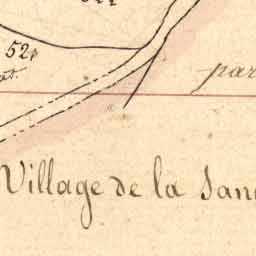 52
par
Village de la San